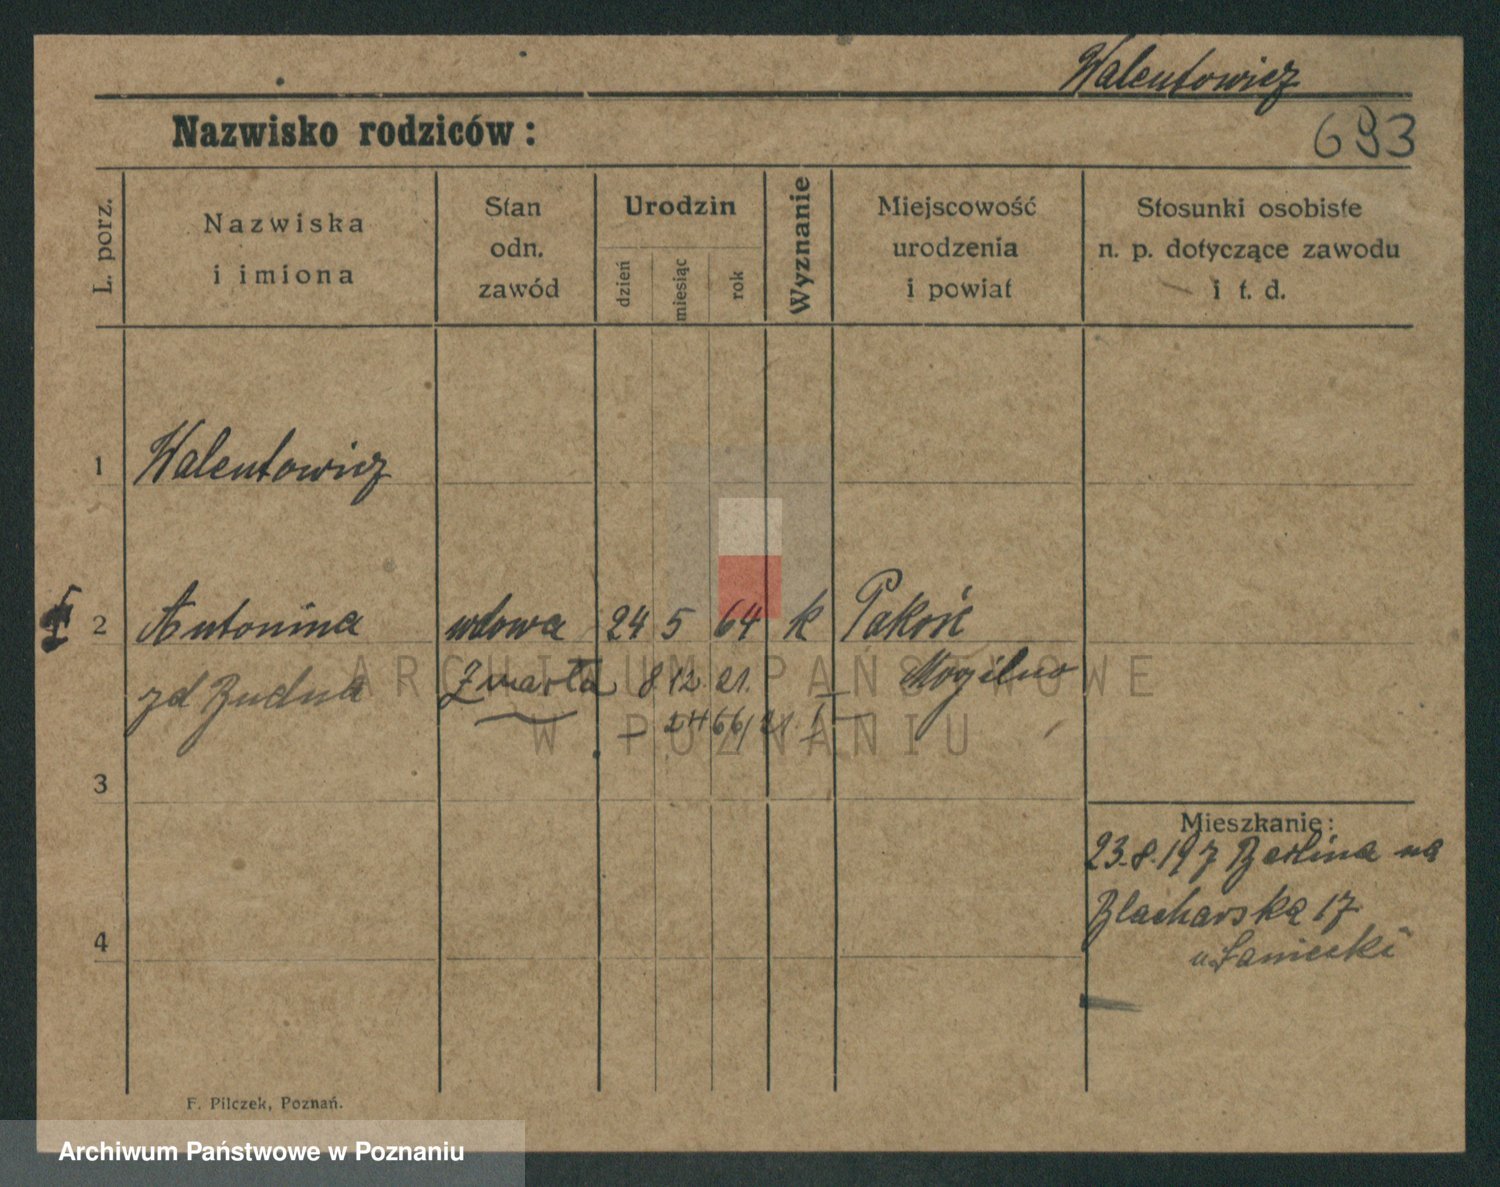 Walentowicz
Nazwisko rodziców:
693
L. porz.
Nazwiska
i imiona
Stan
odn.
zawód
Urodzin
dzień
miesiąc
rok
Wyznanie
Miejscowość
urodzenia
i powiat
Stosunki osobiste
n. p. dotyczące zawodu
i t. d.
1 Walentowicz
2 Antonina wdowa 24 5 64 k Pakość
zd Zmarła 8 12 21. Mogilno
3
Mieszkanie:
23.8.19 z Berlina na
Blacharska 17
4
u Saniecki
F. Pilczek, Poznań.
ARCHIWUM PAŃSTWOWE
W POZNANIU
Archiwum Państwowe w Poznaniu